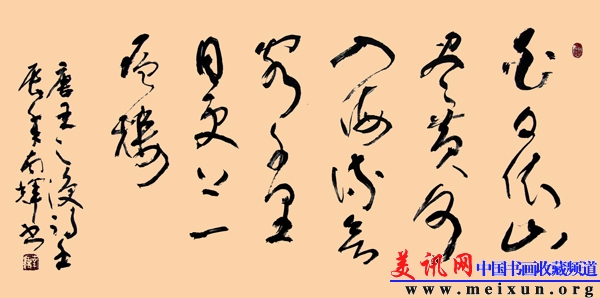 白日依山
尽黄河
入海流欲
穷千里
目更上一
层楼
唐王之涣诗壬
辰年南辉书
美讯网 中国书画收藏频道
www.meixun.org